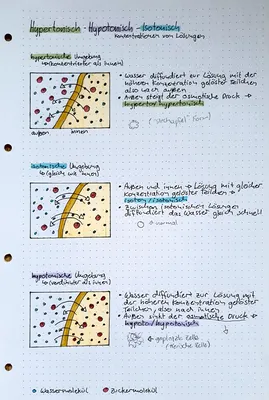 Hypertonisch - Hypotonisch - Isotonisch
Konzentrationen von Lösungen
hypertonische Umgebung
→ (konzentrierter als innen)
• Wasser diffundiert zur Lösung mit der
höheren Konzentration gelöster Teilchen
also nach außen
• Außen steigt der osmotische Druck →
hypertonisch
außen
innen
isotonische Umgebung
→ (gleich wie innen)
• Außen und innen → Lösung mit gleicher
Konzentration gelöster Teilchen →
isotonisch
• Zwischen isotonischen Lösungen
diffundiert das Wasser gleich schnell
→ normal
hypotonische Umgebung
→ (verdünnter als innen)
• Wasser diffundiert zur Lösung mit
der höheren Konzentration gelöster
Teilchen also nach innen
• Außen sinkt der osmotische Druck →
hypotonisch
geplatzte Zelle
(tierische Zelle)
Wassermolekül
Zuckermolekül